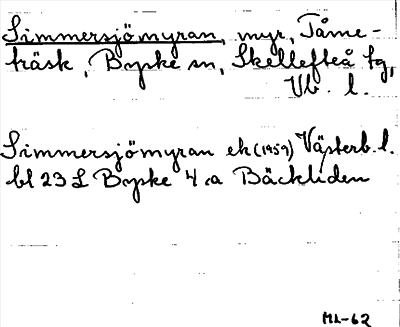 Simmersjömyran, myr, Tåme-
träsk, Byske sn, Skellefteå tg,
Vb. l.
Simmersjömyran ek (1959) Västerb. l.
bl 23 L Byske 4 a Bäckliden
ML-62